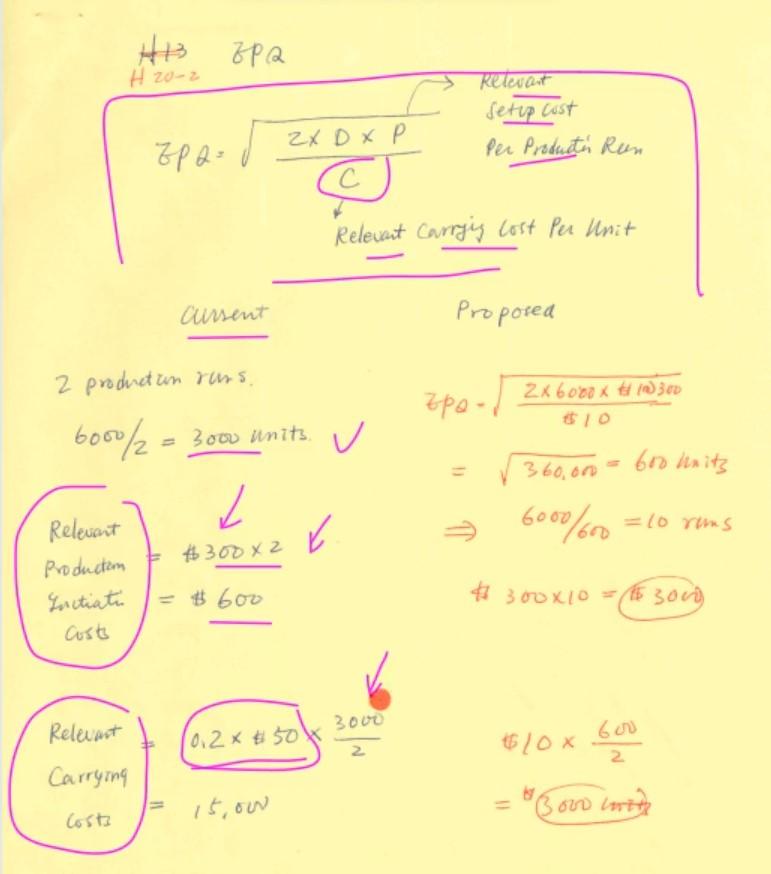 H13 EPQ
H 20-2
EPQ = √ 2 X D X P / C
Relevant
Setup Cost
Per Producti'n Run
Relevant Carryig Cost Per Unit
Current
2 production runs.
6000/2 = 3000 units.
Relevant
Production
Costs
= $300 x 2
= $ 600
Relevant
Carrying
Costs
= 0.2 x $50 x 3000/2
= 15,000
Proposed
EPQ = √ 2 X 6000 x 300 / $10
= √ 360,000 = 600 Units
⇒ 6000/600 = 10 runs
$ 300x10 = $ 3000
$10 x 600/2
= $ 3000 units